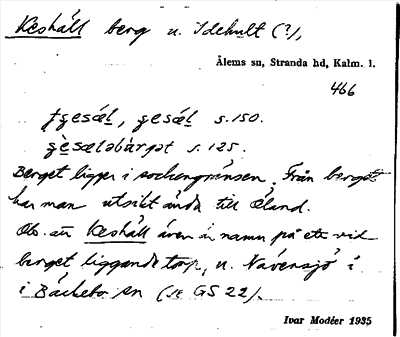 Keshäll berg u. Idehult (?),
Ålems sn, Stranda hd, Kalm. l.
466
s. 150.
s. 125.
Berget ligger i sockengränsen. Från berget
har man utsikt ända till Öland.
Obs. att Keshäll även är namn på ett vid
berget liggande torp, u. Nävensjö i
i Bäckebo sn (se GS 22).
Ivar Modéer 1935